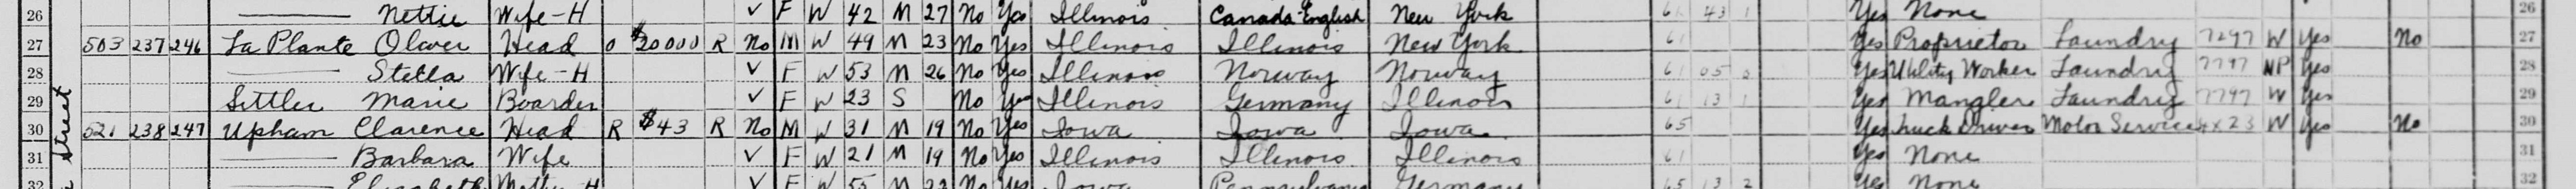 26 Nettie Wife-H V F W 42 M 27 No Yes Illinois Canada-English New York 61 43 1 Yes None 26
27 503 237 246 La Plante Oliver Head O $20000 R No M W 49 M 23 No Yes Illinois Illinois New York 61 Yes Proprietor Laundry 7297 W Yes No 27
28 Stella Wife-H V F W 53 M 26 No Yes Illinois Norway Norway 61 05 2 Yes Utility Worker Laundry 7797 NP Yes 28
29 Settler Marie Boarder V F W 23 S No Yes Illinois Germany Illinois 61 13 1 Yes Mangler Laundry 7797 W Yes 29
Street
30 521 238 247 Upham Clarence Head R $43 R No M W 31 M 19 No Yes Iowa Iowa Iowa 65 Yes Truck Driver Motor Service 4X23 W Yes No 30
31 Barbara Wife V F W 21 M 19 No Yes Illinois Illinois Illinois 61 Yes None 31
32 Elizabeth Mother-H V F W 55 M 22 No Yes Iowa Pennsylvania Germany 65 13 2 Yes None 32